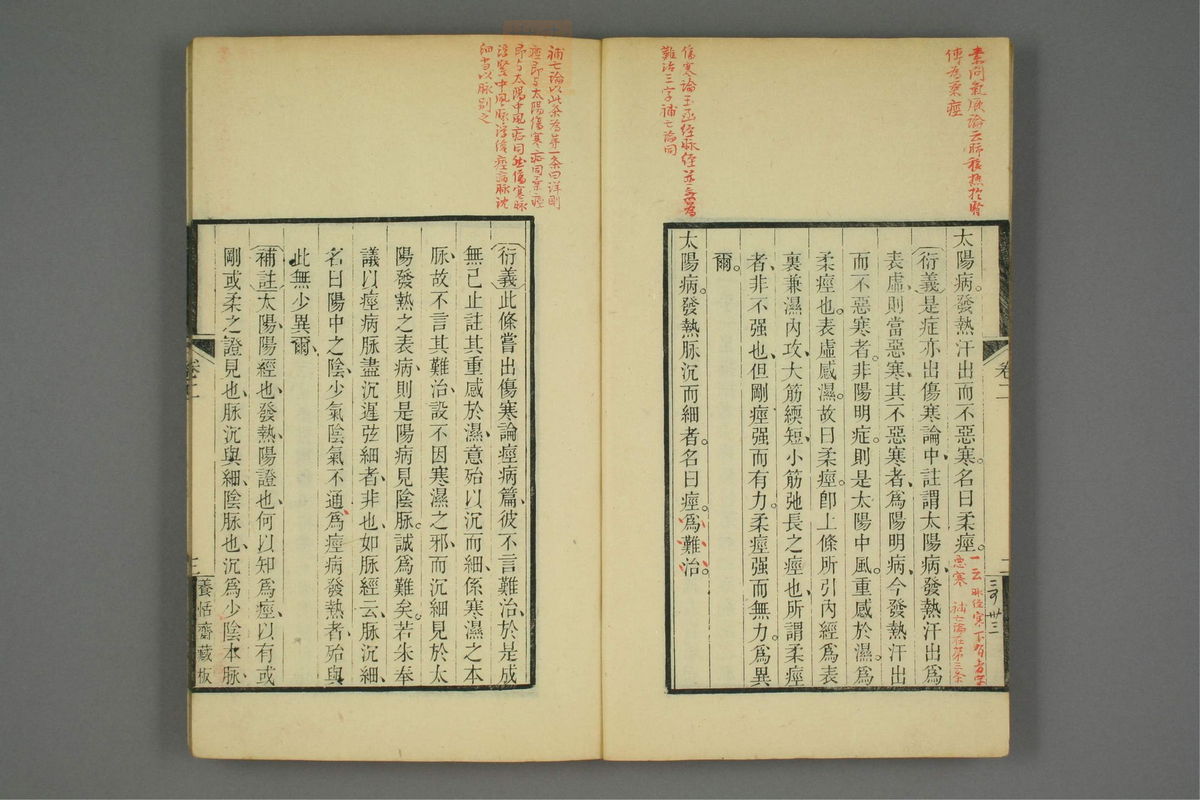 素問氣厥論云肺移熱於腎
傳為柔痙
傷寒論玉函經脈經並無為
難治三字補亡論同
太陽病。發熱汗出而不惡寒。名曰柔痙。
一云脈經寒下有者字
惡寒 補亡論在第三条
〔衍義〕是症亦出傷寒論、中註謂太陽病、發熱汗出爲
表虛、則當惡寒、其不惡寒者、爲陽明病、今發熱汗出
而不惡寒者。非陽明症。則是太陽中風。重感於濕。爲
柔痙也。表虛感濕。故曰柔痙。卽上條所引內經爲表
裏兼濕內攻、大筋緛短、小筋弛長之痙也、所謂柔痙
者、非不强也、但剛痙强而有力。柔痙强而無力。爲異
爾。
太陽病。發熱脉沉而細者。名曰痙。爲難治。
卷二
三
補亡論以此条為第一条曰詳剛
痙即与太陽傷寒症同柔痙
即与太陽中風症同然傷寒脈
浮緊中風脈浮緩痙病脈沈
細当以脈別之
〔衍義〕此條嘗出傷寒論痙病篇、彼不言難治、於是成
無己止註其重感於濕、意殆以沉而細、係寒濕之本
脉、故不言其難治、設不因寒濕之邪、而沉細見於太
陽發熱之表病、則是陽病見陰脉。誠爲難矣。若朱奉
議以痙病脉盡沉遲弦細者、非也、如脉經云、脉沉細、
名曰陽中之陰少氣陰氣不通、爲痙病發熱者、殆與
此無少異爾、
〔補註〕太陽陽經也、發熱陽證也、何以知爲痙、以有或
剛或柔之證見也、脉沉與細、陰脉也、沉爲少陰本脉、
卷二
三
養恬齋藏板